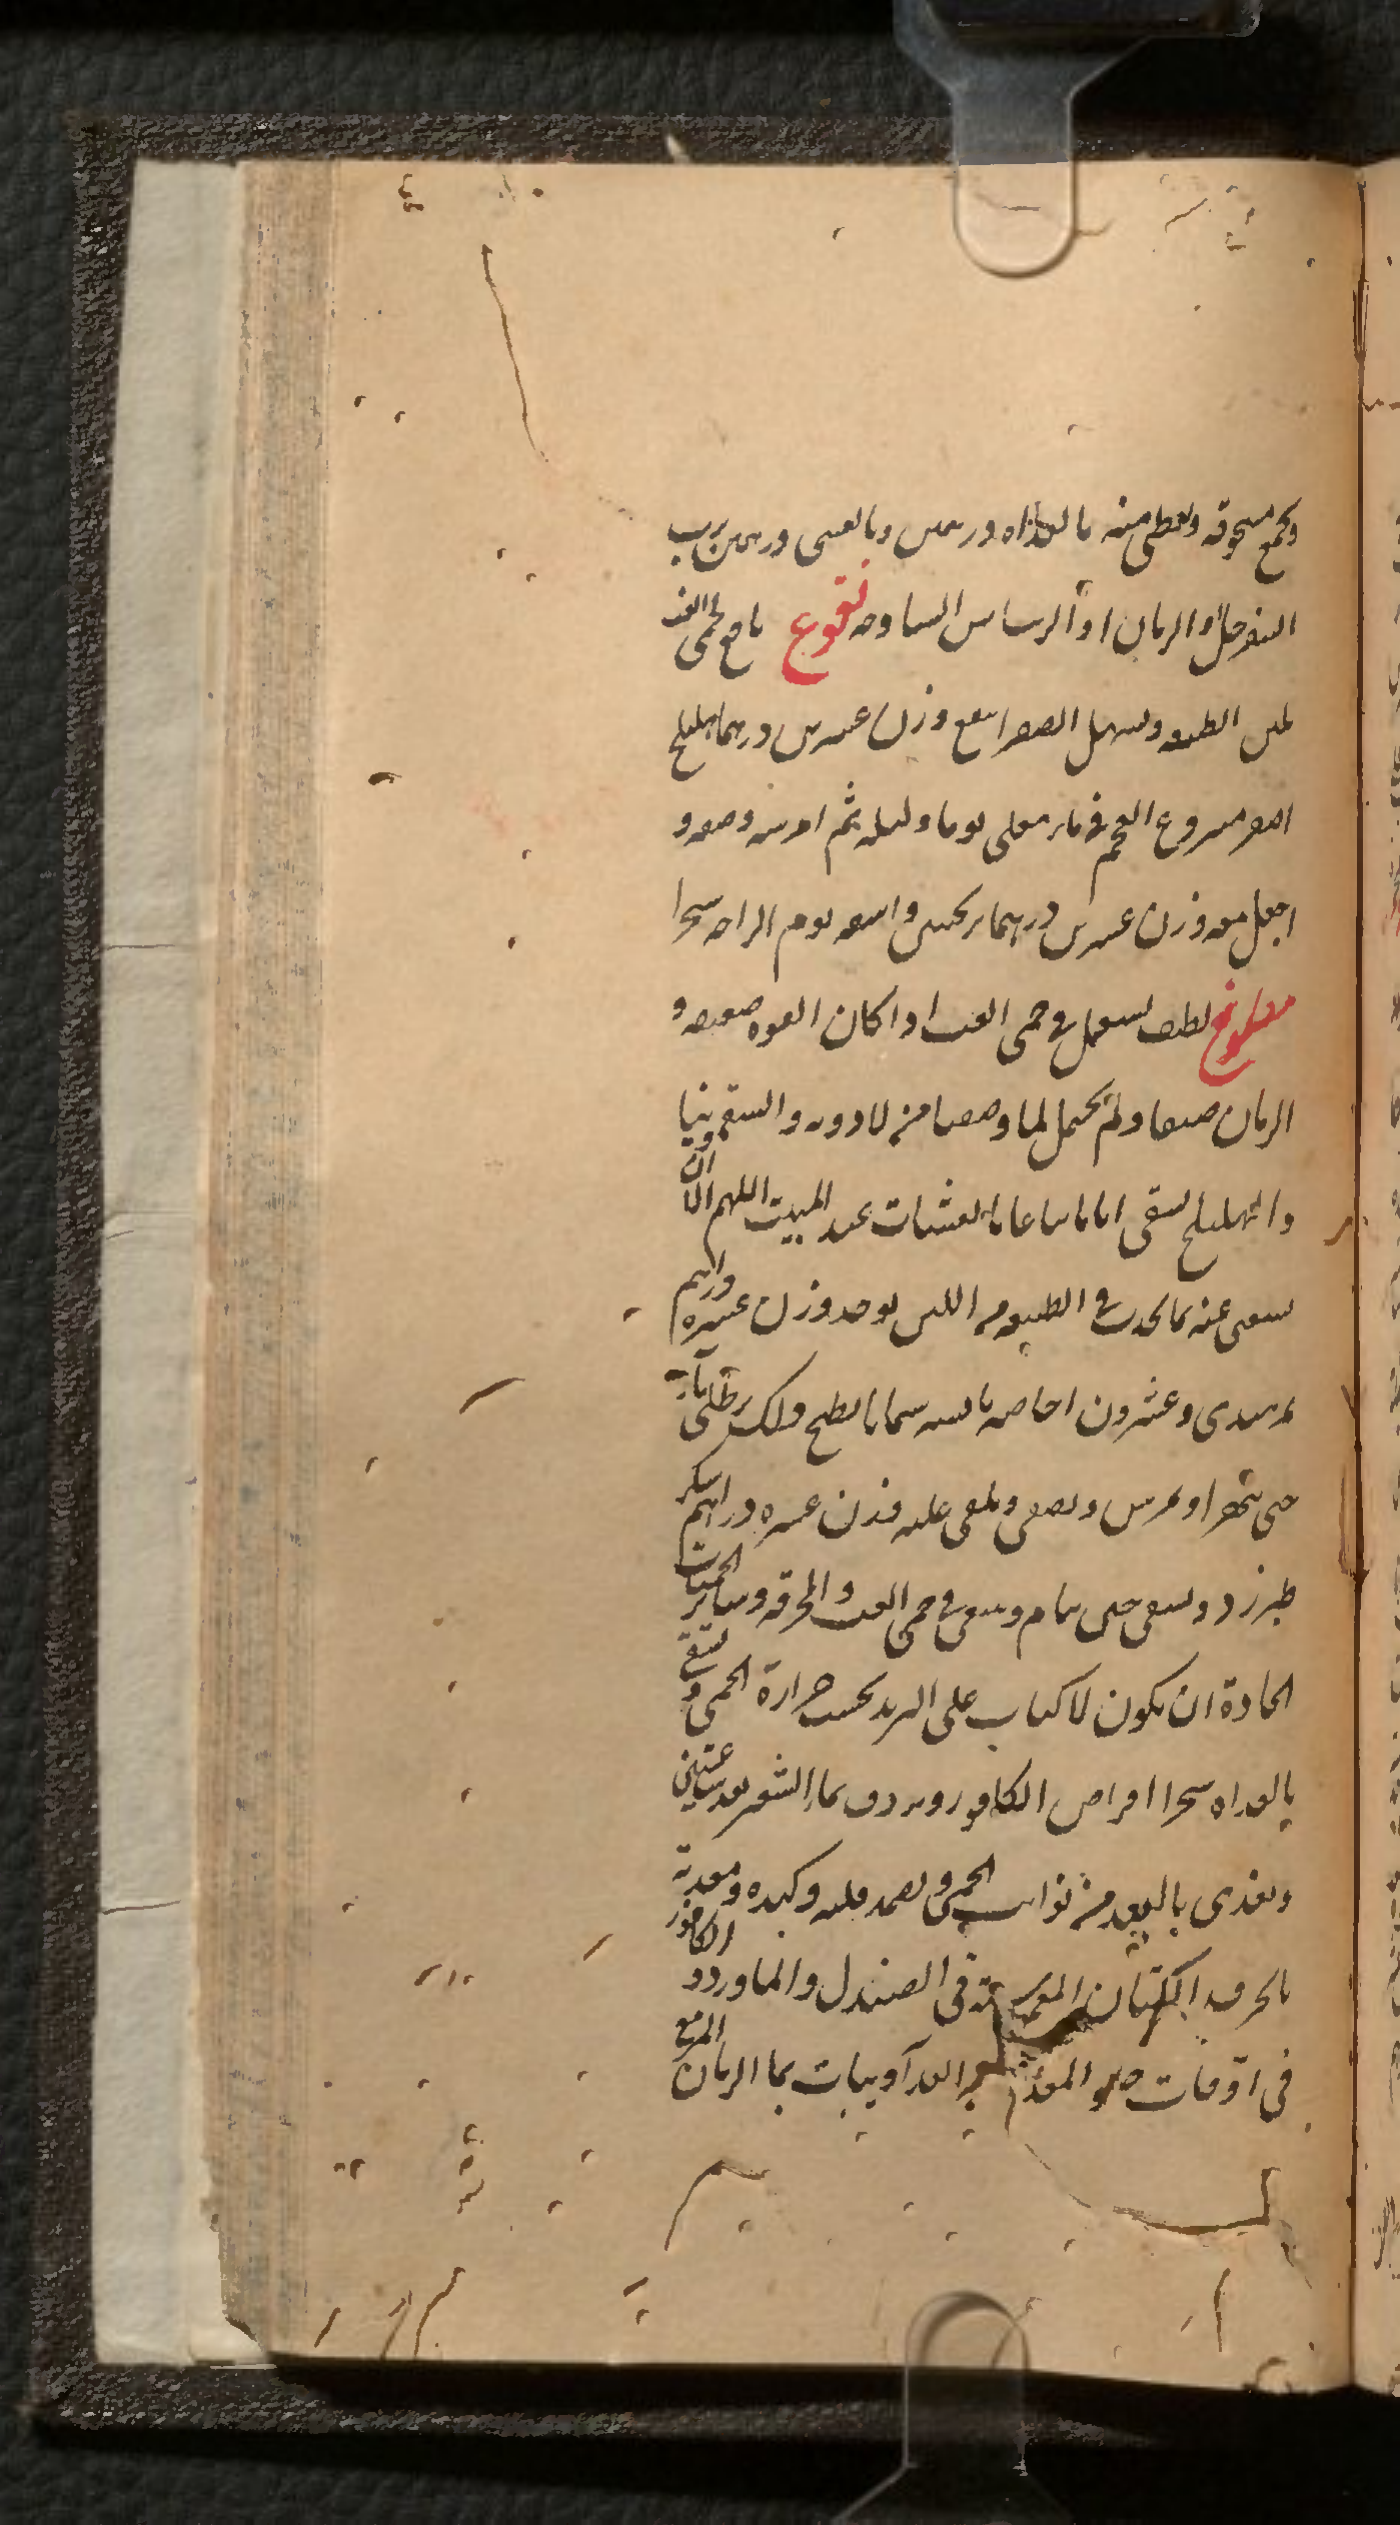 وتجمع مسحوقة ويعطى منه بالغداة درهمين وبالعشى درهمين برب
السفرجل والرمان او الرساس الساوحه نقوع نافع لحمى الغب
يلين الطبيعه ويسهل الصفرا ينقع وزن عشرين درهما هليلج
اصفر منزوع العجم فى ماء مغلى يوما وليله ثم امرسه وصفه و
اجعل معه وزن عشرين درهما ترنجبين واسقه يوم الراحه سحرا
مطبوخ لطيف يستعمل فى حمى الغب اذا كان القوه ضعيفه و
الزمان صيفا ولم يحتمل لما وصفنا من الادويه والسقمونيا
والهليلج يسقى اياما تباعا بالعشيات عند المبيت اللهم الا ان
يستغنى عنه بما يحدث فى الطبيعه من اللين يوخذ وزن عشره دراهم
تمر هندى وعشرون اجاصه يابسه سمانا يطبخ ذلك برطلى ماء
حتى يتهرا ويمرس ويصفى ويلقى عليه وزن عشره دراهم سكر
طبرزد ويسقى حين ينام وينبغى فى حمى الغب والمحرقه وساير الحميات
الحادة ان يكون الاكباب على التبريد بحسب حرارة الحمى و يسقى
بالغداه سحرا اقراص الكافور ويردف بماء الشعير بعد ساعتين
ويغذى بالبعد من نوايب الحمى ويضمد قلبه وكبده ومعدته
بالخرق الكتان المغموسة فى الصندل والماورد والكافور
فى اوقات خلو المعدة من الغدا ويبات بماء الرمان المز مع